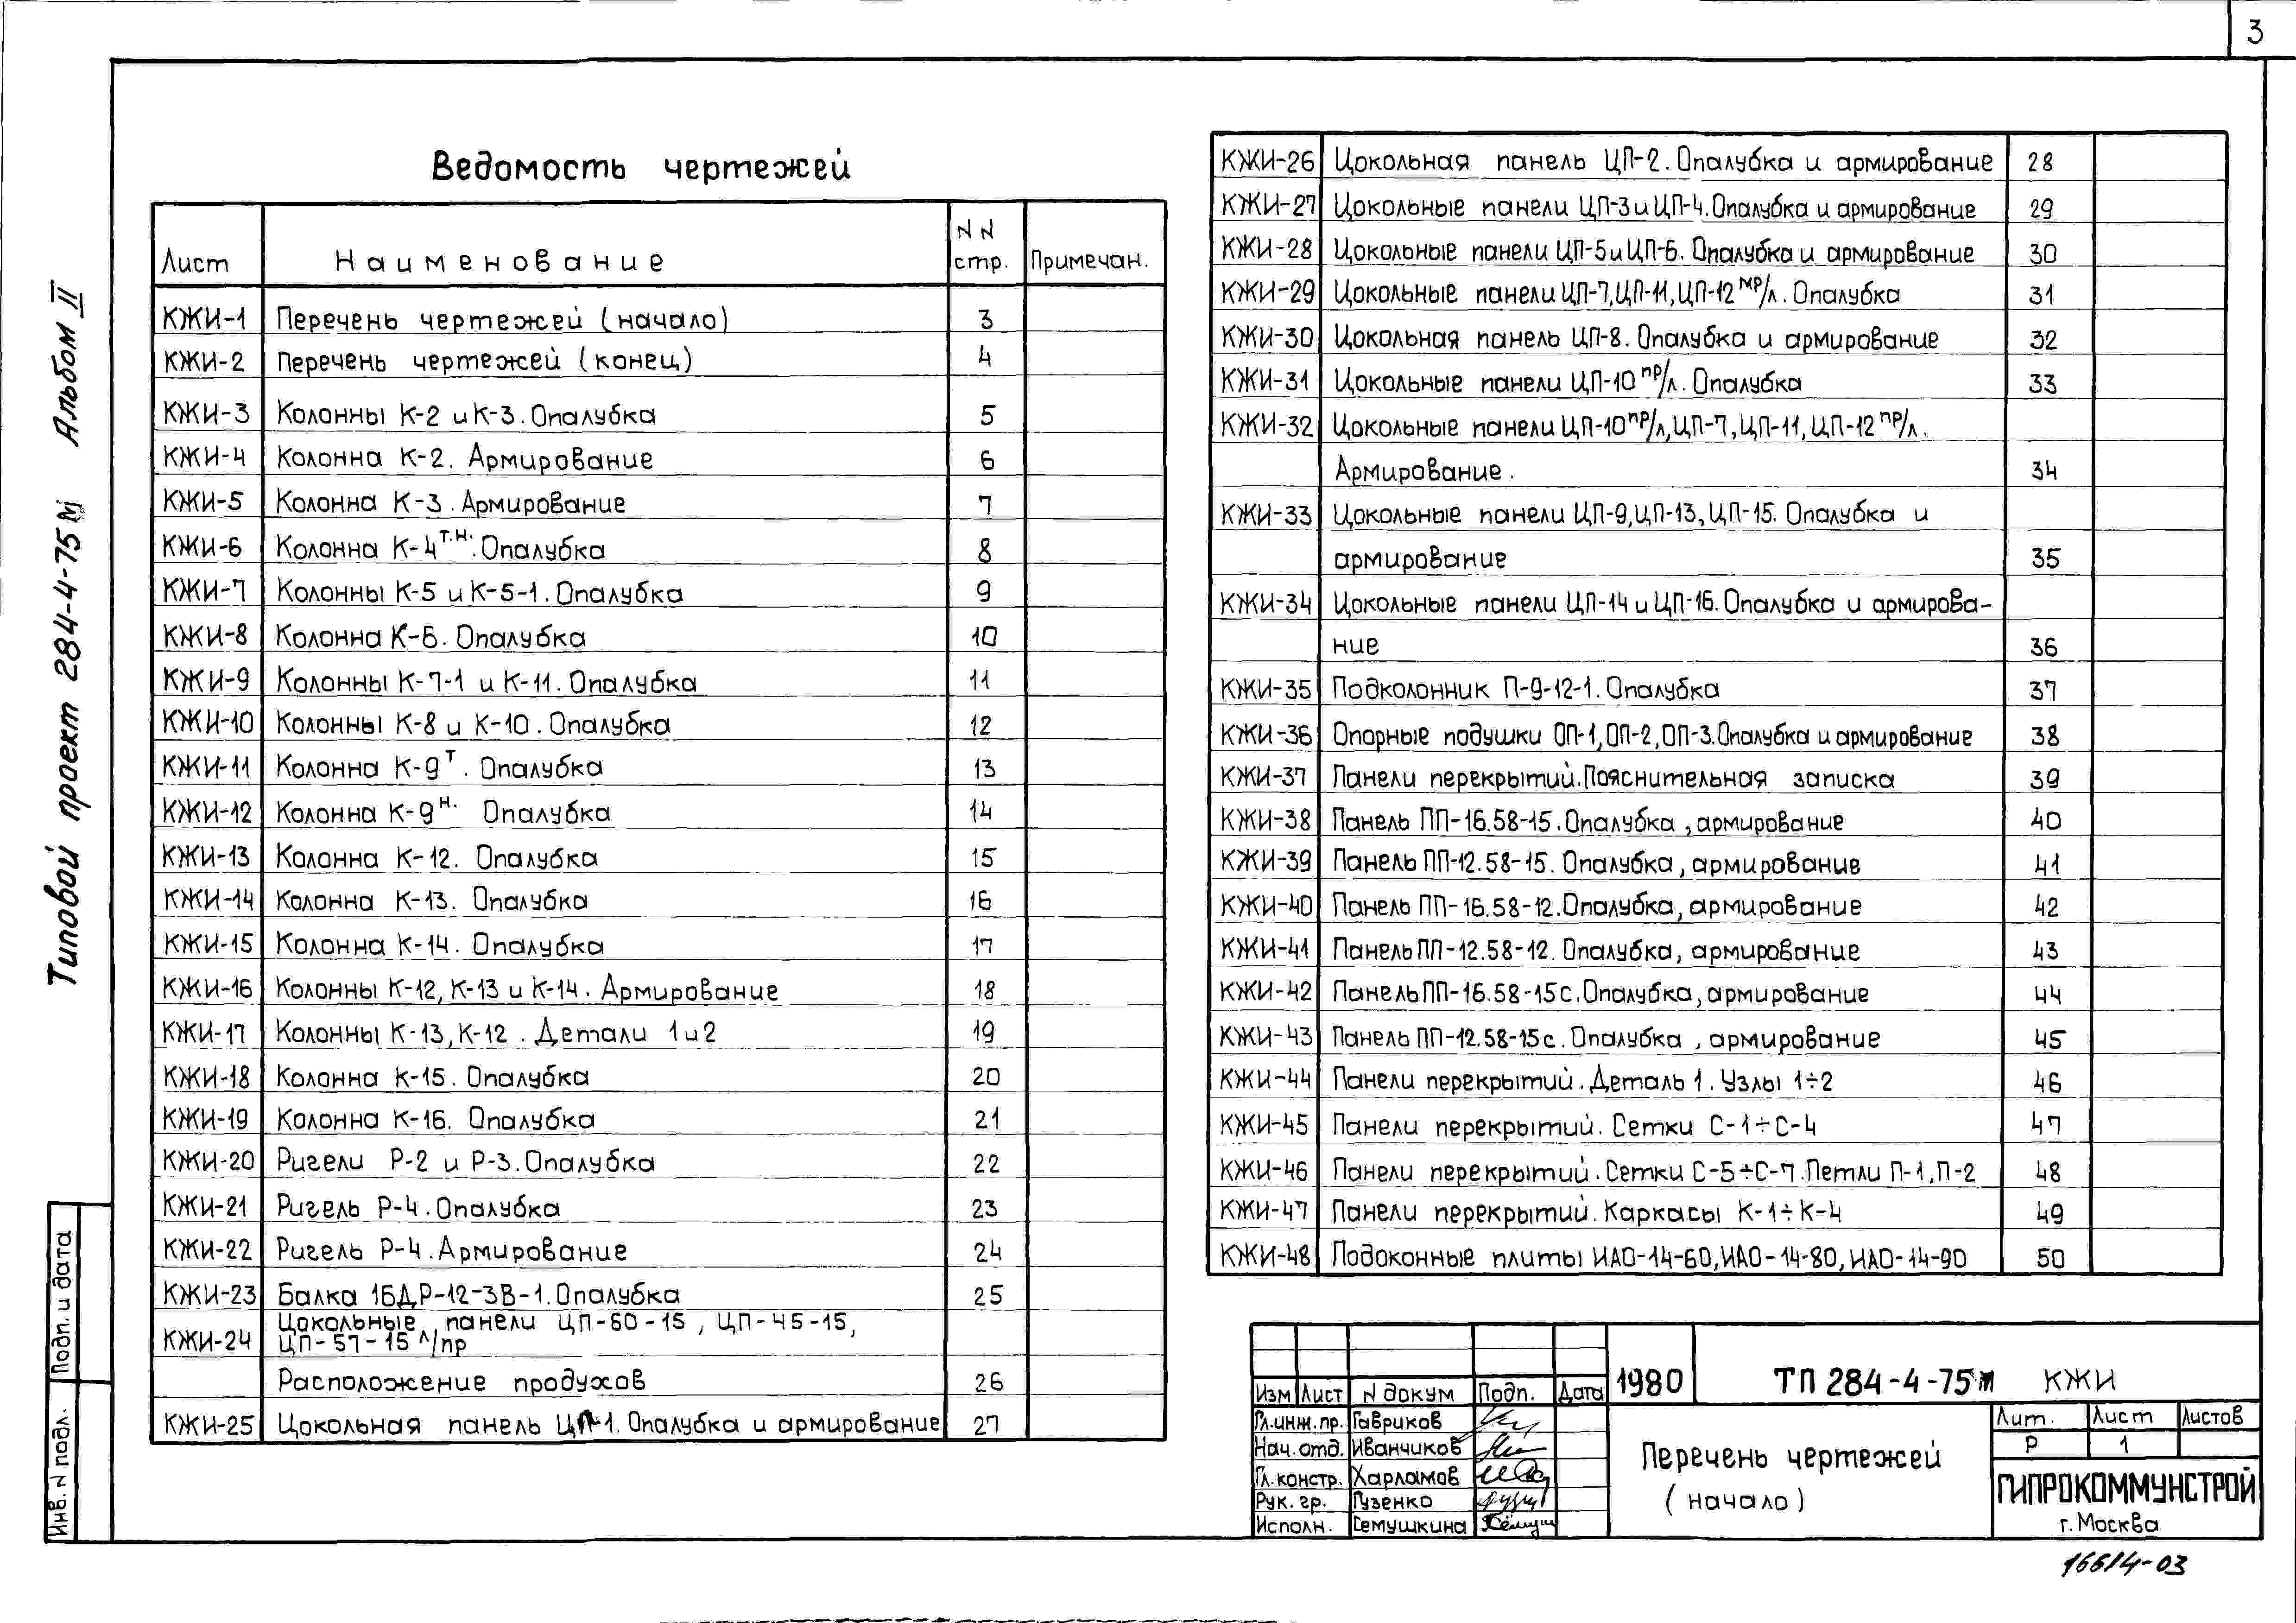 3
Типовой проект 284-4-75м Альбом II
Ведомость чертежей
Лист Наименование NN стр. Примечан.
КЖИ-1 Перечень чертежей (начало) 3
КЖИ-2 Перечень чертежей (конец) 4
КЖИ-3 Колонны К-2 и К-3. Опалубка 5
КЖИ-4 Колонна К-2. Армирование 6
КЖИ-5 Колонна К-3. Армирование 7
КЖИ-6 Колонна К-4т.н. Опалубка 8
КЖИ-7 Колонны К-5 и К-5-1. Опалубка 9
КЖИ-8 Колонна К-6. Опалубка 10
КЖИ-9 Колонны К-7-1 и К-11. Опалубка 11
КЖИ-10 Колонны К-8 и К-10. Опалубка 12
КЖИ-11 Колонна К-9т. Опалубка 13
КЖИ-12 Колонна К-9н. Опалубка 14
КЖИ-13 Колонна К-12. Опалубка 15
КЖИ-14 Колонна К-13. Опалубка 16
КЖИ-15 Колонна К-14. Опалубка 17
КЖИ-16 Колонны К-12, К-13 и К-14. Армирование 18
КЖИ-17 Колонны К-13, К-12. Детали 1 и 2 19
КЖИ-18 Колонна К-15. Опалубка 20
КЖИ-19 Колонна К-16. Опалубка 21
КЖИ-20 Ригели Р-2 и Р-3. Опалубка 22
КЖИ-21 Ригель Р-4. Опалубка 23
КЖИ-22 Ригель Р-4. Армирование 24
КЖИ-23 Балка 1БДР-12-3В-1. Опалубка 25
Цокольные панели ЦП-60-15, ЦП-45-15,
КЖИ-24 ЦП-57-15 л/пр
Расположение продухов 26
КЖИ-25 Цокольная панель ЦП-1. Опалубка и армирование 27
КЖИ-26 Цокольная панель ЦП-2. Опалубка и армирование 28
КЖИ-27 Цокольные панели ЦП-3 и ЦП-4. Опалубка и армирование 29
КЖИ-28 Цокольные панели ЦП-5 и ЦП-6. Опалубка и армирование 30
КЖИ-29 Цокольные панели ЦП-7, ЦП-11, ЦП-12 мр/л. Опалубка 31
КЖИ-30 Цокольная панель ЦП-8. Опалубка и армирование 32
КЖИ-31 Цокольные панели ЦП-10 пр/л. Опалубка 33
КЖИ-32 Цокольные панели ЦП-10пр/л, ЦП-7, ЦП-11, ЦП-12 пр/л.
Армирование. 34
КЖИ-33 Цокольные панели ЦП-9, ЦП-13, ЦП-15. Опалубка и
армирование 35
КЖИ-34 Цокольные панели ЦП-14 и ЦП-16. Опалубка и армирова-
ние 36
КЖИ-35 Подколонник П-9-12-1. Опалубка 37
КЖИ-36 Опорные подушки ОП-1, ОП-2, ОП-3. Опалубка и армирование 38
КЖИ-37 Панели перекрытий. Пояснительная записка 39
КЖИ-38 Панель ПП-16.58-15. Опалубка, армирование 40
КЖИ-39 Панель ПП-12.58-15. Опалубка, армирование 41
КЖИ-40 Панель ПП-16.58-12. Опалубка, армирование 42
КЖИ-41 Панель ПП-12.58-12. Опалубка, армирование 43
КЖИ-42 Панель ПП-16.58-15с. Опалубка, армирование 44
КЖИ-43 Панель ПП-12.58-15с. Опалубка, армирование 45
КЖИ-44 Панели перекрытий. Деталь 1. Узлы 1÷2 46
КЖИ-45 Панели перекрытий. Сетки С-1÷С-4 47
КЖИ-46 Панели перекрытий. Сетки С-5÷С-7. Петли П-1, П-2 48
КЖИ-47 Панели перекрытий. Каркасы К-1÷К-4 49
КЖИ-48 Подоконные плиты ИАО-14-60, ИАО-14-80, ИАО-14-90 50
Изм Лист N докум Подп. Дата 1980 ТП 284-4-75м КЖИ
Гл.инж.пр. Гавриков
Нач.отд. Иванчиков
Гл.констр. Харламов
Рук.гр. Гузенко
Исполн. Семушкина
Перечень чертежей
(начало)
Лит. Лист Листов
Р 1
ГИПРОКОММУНСТРОЙ
г. Москва
Подп. и дата
Инв. N подл.
16614-03